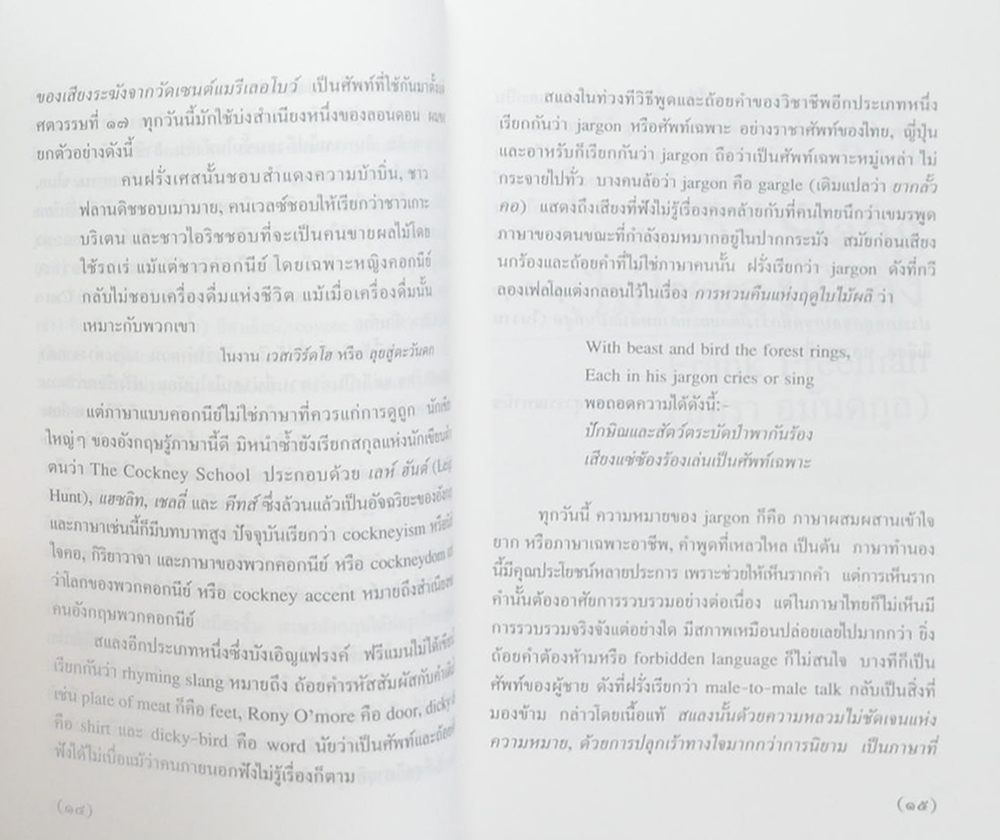 ของเสียงระฆังจากวัดเซนต์แมรีเลอโบว์ เป็นศัพท์ที่ใช้กันมาตั้งแต่
ศตวรรษที่ ๑๗ ทุกวันนี้มักใช้บ่งสำเนียงหนึ่งของลอนดอน ผมขอ
ยกตัวอย่างดังนี้
คนฝรั่งเศสนั้นชอบสำแดงความบ้าบิ่น, ชาว
ฟลานดิชชอบเมามาย, คนเวลซ์ชอบให้เรียกว่าชาวเกาะ
บริเตน และชาวไอริชชอบที่จะเป็นคนขายผลไม้โดย
ใช้รถเร่ แม้แต่ชาวคอกนีย์ โดยเฉพาะหญิงคอกนีย์
กลับไม่ชอบเครื่องดื่มแห่งชีวิต แม้เมื่อเครื่องดื่มนั้น
เหมาะกับพวกเขา
ในงาน เวสเวิร์ดโฮ หรือ ลุยสู่ตะวันตก
แต่ภาษาแบบคอกนีย์ไม่ใช่ภาษาที่ควรแก่การดูถูก
ใหญ่ๆ ของอังกฤษรู้ภาษานี้ดี มิหนำซ้ำยังเรียกสกุลแห่งนักเขียน
ตนว่า The Cockney School ประกอบด้วย เลห์ ฮันต์
Hunt), แฮซลิท, เชลลี่ และ คีทส์ ซึ่งล้วนแล้วเป็นอัจฉริยะของ
และภาษาเช่นนี้ก็มีบทบาทสูง ปัจจุบันเรียกว่า cockneyism
ใจคอ, กิริยาวาจา และภาษาของพวกคอกนีย์ หรือ cockneydom
ว่าโลกของพวกคอกนีย์ หรือ cockney accent หมายถึงสำเนียง
คนอังกฤษพวกคอกนีย์
สแลงอีกประเภทหนึ่งซึ่งบังเอิญแฟรงค์ ฟรีแมนไม่ได้
เรียกกันว่า rhyming slang หมายถึง ถ้อยคำรหัสสัมผัสกับคำ
เช่น plate of meat ก็คือ feet, Rony O'more คือ door, dicky
คือ shirt และ dicky-bird คือ word นัยว่าเป็นศัพท์และ
ฟังได้ไม่เบื่อแม้ว่าคนภายนอกฟังไม่รู้เรื่องก็ตาม
(๑๔)
สแลงในท่วงทีวิธีพูดและถ้อยคำของวิชาชีพอีกประเภทหนึ่ง
เรียกกันว่า jargon หรือศัพท์เฉพาะ อย่างราชาศัพท์ของไทย, ญี่ปุ่น
และอาหรับก็เรียกกันว่า jargon ถือว่าเป็นศัพท์เฉพาะหมู่เหล่า ไม่
กระจายไปทั่ว บางคนล้อว่า jargon คือ gargle (เดิมแปลว่า ยากลั้ว
คอ) แสดงถึงเสียงที่ฟังไม่รู้เรื่องคงคล้ายกับที่คนไทยนึกว่าเขมรพูด
ภาษาของตนขณะที่กำลังอมหมากอยู่ในปากกระมัง สมัยก่อนเสียง
นกร้องและถ้อยคำที่ไม่ใช่ภาษาคนนั้น ฝรั่งเรียกว่า jargon ดังที่กวี
ลองเฟลโลแต่งกลอนไว้ในเรื่อง การหวนคืนแห่งฤดูใบไม้ผลิ ว่า
With beast and bird the forest rings,
Each in his jargon cries or sing
พอถอดความได้ดังนี้:-
ปักษิณและสัตว์ตระบัดป่าพากันร้อง
เสียงแซ่ซ้องร้องเล่นเป็นศัพท์เฉพาะ
ทุกวันนี้ ความหมายของ jargon ก็คือ ภาษาผสมผสานเข้าใจ
ยาก หรือภาษาเฉพาะอาชีพ, คำพูดที่เหลวไหล เป็นต้น ภาษาทำนอง
นี้มีคุณประโยชน์หลายประการ เพราะช่วยให้เห็นรากคำ แต่การเห็นราก
คำนั้นต้องอาศัยการรวบรวมอย่างต่อเนื่อง แต่ในภาษาไทยก็ไม่เห็นมี
การรวบรวมจริงจังแต่อย่างใด มีสภาพเหมือนปล่อยเลยไปมากกว่า ยิ่ง
ถ้อยคำต้องห้ามหรือ forbidden language ก็ไม่สนใจ บางทีก็เป็น
ศัพท์ของผู้ชาย ดังที่ฝรั่งเรียกว่า male-to-male talk กลับเป็นสิ่งที่
มองข้าม กล่าวโดยเนื้อแท้ สแลงนั้นด้วยความหลวมไม่ชัดเจนแห่ง
ความหมาย, ด้วยการปลุกเร้าทางใจมากกว่าการนิยาม เป็นภาษาที่
(๑๕)